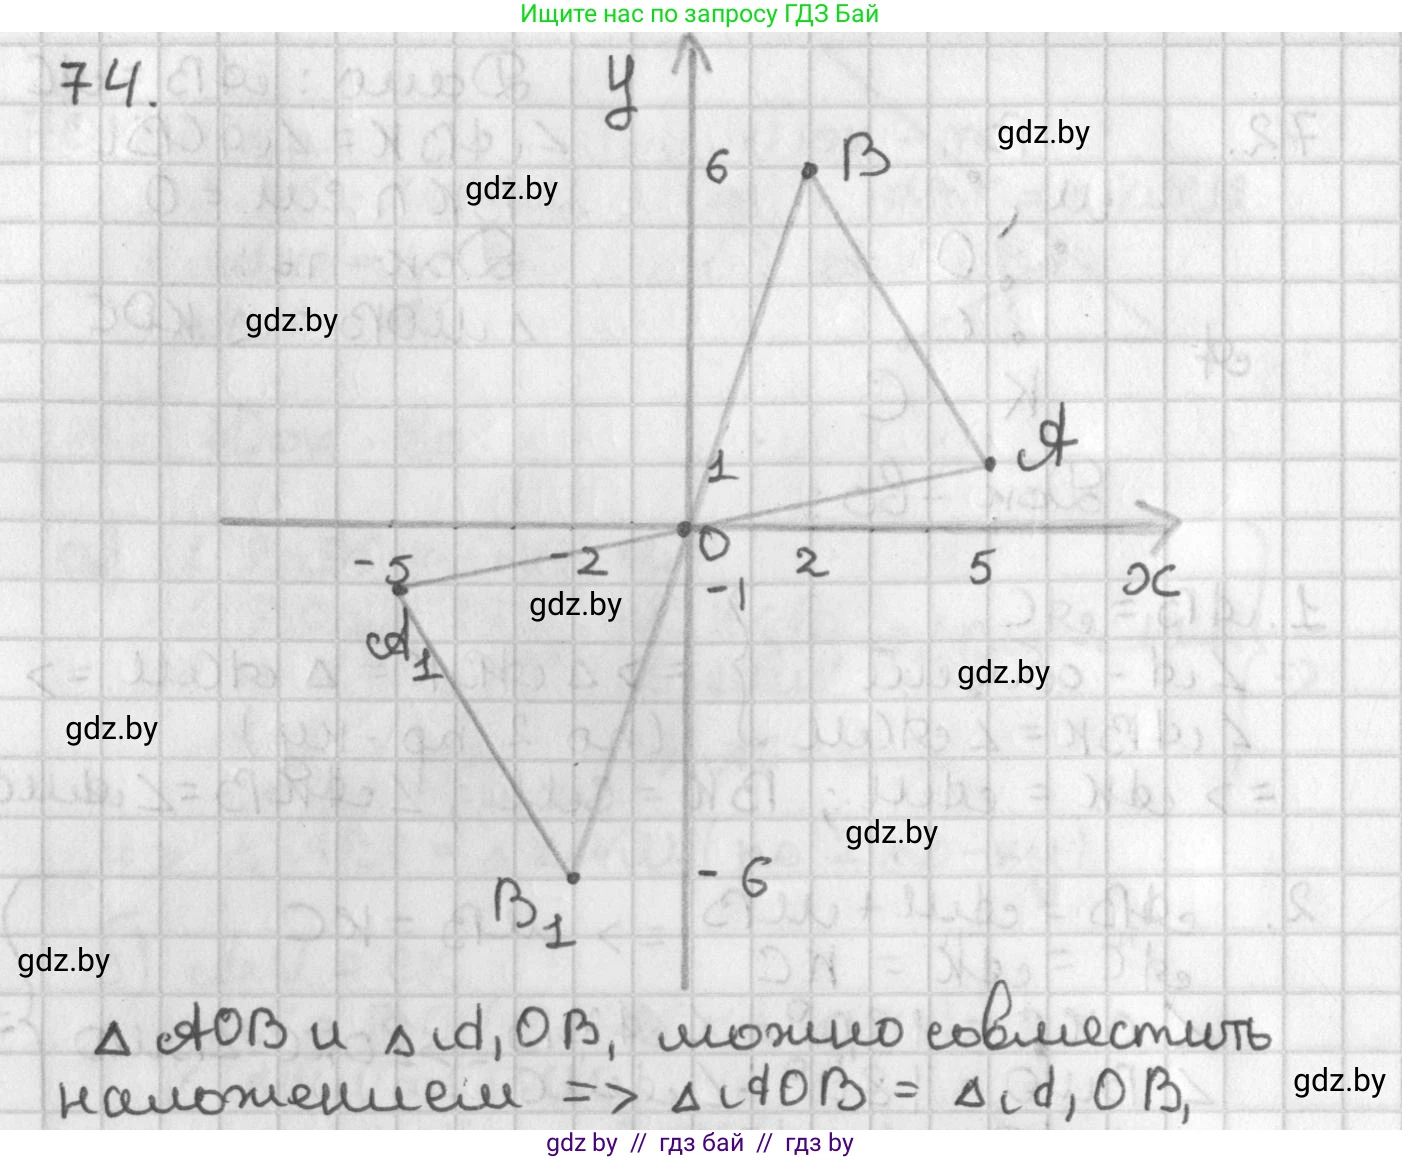 Ищите нас по запросу ГДЗ Бай
74.
y
6
B
gdz.by
gdz.by
gdz.by
1
A
0
-5
-2
2
5
x
-1
gdz.by
A1
gdz.by
gdz.by
gdz.by
-6
B1
gdz.by
Δ AOB и Δ A1OB1 можно совместить
наложением => Δ AOB = Δ A1OB1
gdz.by
gdz by // гдз бай // гдз by